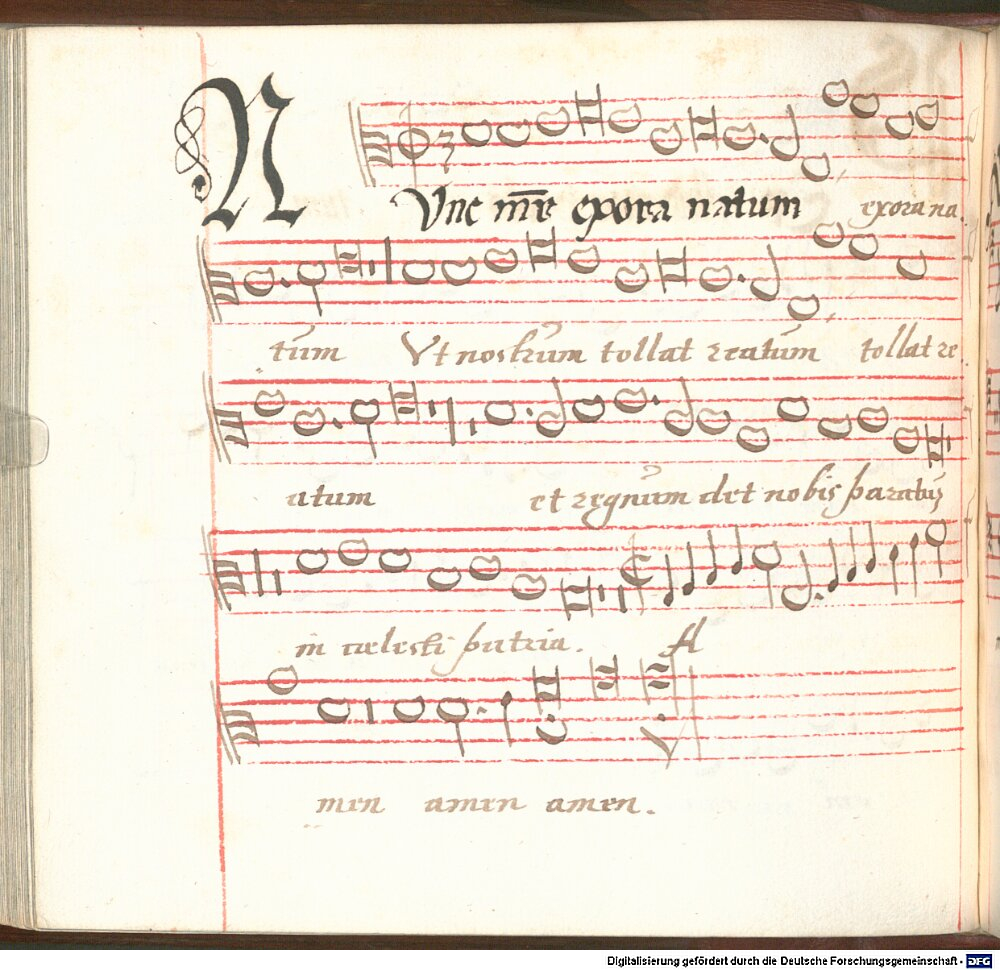 NVnc mr̄e exora natum exora na
tum Vt nostrum tollat reatum tollat re
atum et regnum det nobis paratū
in cœlesti patria. A
men amen amen.
Digitalisierung gefördert durch die Deutsche Forschungsgemeinschaft - DFG